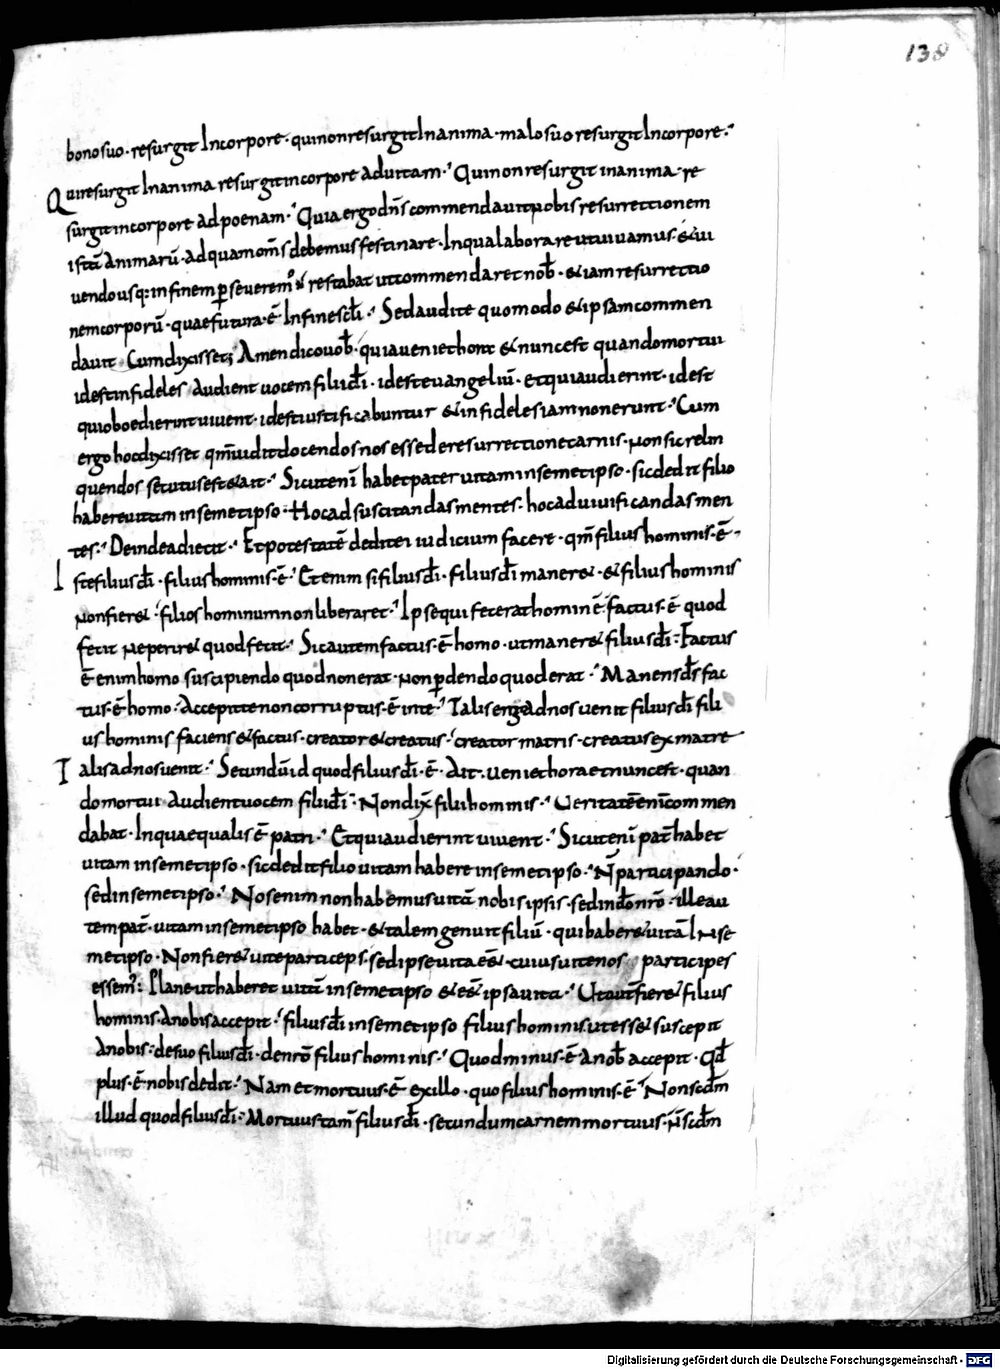 138
bono suo · resurgit In corpore · qui non resurgit In anima · malo suo resurgit In corpore ·
Qui resurgit In anima resurgit in corpore ad uitam · Qui non resurgit in anima · re
surgit in corpore ad poenam · Quia ergo dn̄s commendauit nobis resurrectionem
istā animarū · ad quam om̄s debemus festinare · In qua laborare ut uiuamus · & ui
uendo usq: in finem perseuerem' restabat ut commendaret nob̄ · & iam resurrectio
nem corporū · quae futura · ē In fine scl̄i · Sed audite quomodo & ipsam commen
dauit Cum dixisset; Amen dico uob̄ · quia ueniet hora & nunc est quando mortui
id est infideles audient uocem filii dī · id est euangeliū · et qui audierint · id est
qui oboedierint uiuent · id est iustificabuntur & infideles iam non erunt · Cum
ergo hoc dixisset qm̄ uidit docendos nos esse de resurrectione carnis · non sic relin
quendos secutus est & ait · Sicut enī habet pater uitam in semetipso · sic dedit filio
habere uitam in semetipso · Hoc ad suscitandas mentes · hoc ad uiuificandas men
tes · Deinde adiecit · Et potestatē dedit ei iudicium facere · qm̄ filius hominis · ē ·
Iste filius dī · filius hominis · ē · Etenim si filius dī · filius dī maner& · & filius hominis
non fier& · filios hominum non liberaret · Ipse qui fecerat hominē factus · ē quod
fecit ne perir& quod fecit · Sic autem factus · ē homo · ut maner& filius dī · Factus
ē enim homo suscipiendo quod non erat · non perdendo quod erat · Manens dī fac
tus · ē homo · Accepit te non corruptus · ē in te · Talis ergo ad nos uenit filius dī fili
us hominis faciens & factus · creator & creatus · creator matris · creatus ex matre
Talis ad nos uenit · Secundum id quod filius dī · ē · Ait · ueniet hora et nunc est · quan
do mortui audient uocem filii dī · Non dix̄ filii hominis · Ueritatē enī commen
dabat · In qua equalis ē patri · Et qui audierint uiuent · Sicut enī pat̄ habet
uitam in semetipso · sic dedit filio uitam habere in semetipso · N̄ participando ·
sed in semetipso · Nos enim non habemus uitā nobis ipsis · sed in dō nrō · ille au
tem pat̄ · uitam in semetipso habet · & talem genuit filiū · qui haber& uitā In se
metipso · Non fier& uite particeps · sed ipse uita eē& · cuius uite nos participes
essem' · Plane ut haberet uitā in semetipso & eē& ipsa uita · Ut aut̄ fier& filius
hominis · a nobis accepit · filius dī in semetipso filius hominis ut ess& suscepit
a nobis · de suo filius dī · de nrō filius hominis · Quod minus · ē a nob̄ accepit · qd̄
plus · ē nobis dedit · Nam et mortuus · ē ex illo · quo filius hominis · ē · Non scdm̄
illud quod filius dī · Mortuus tam̄ filius dī · secundum carnem mortuus · n̄ scdm̄
Digitalisierung gefördert durch die Deutsche Forschungsgemeinschaft - DFG